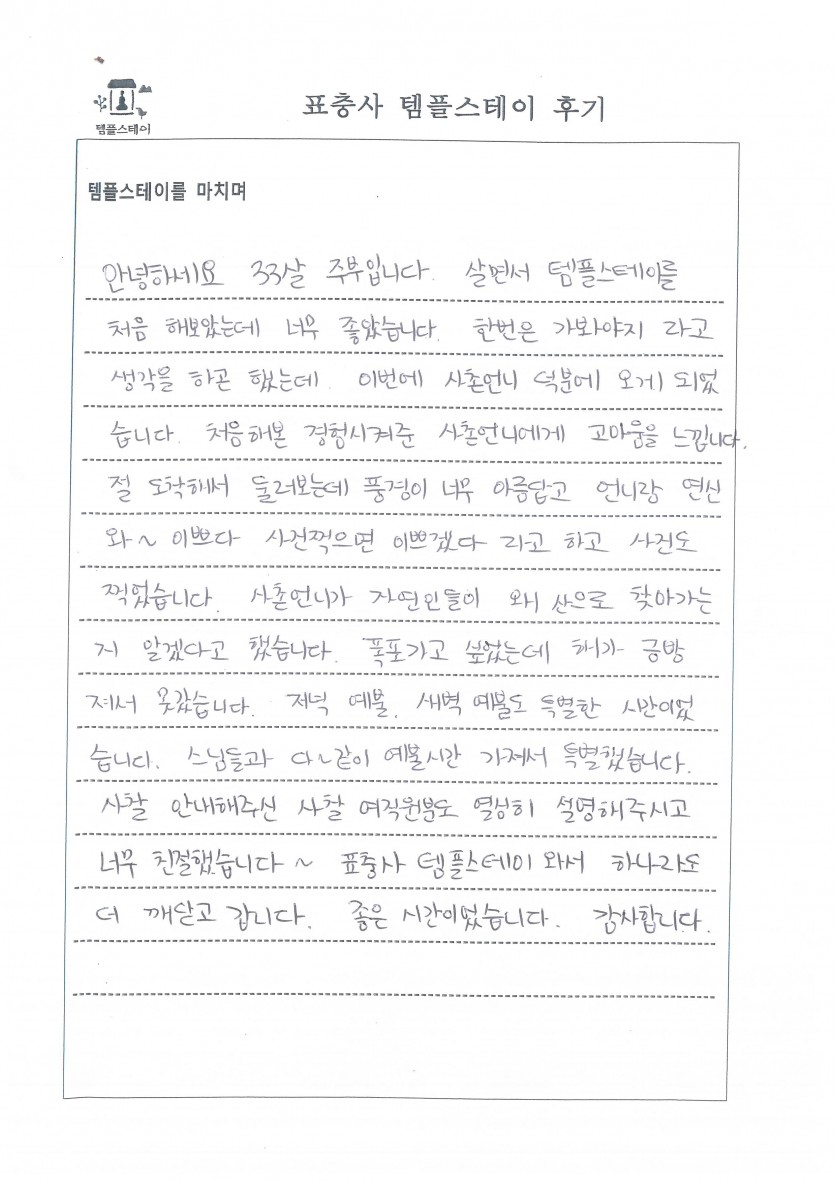 템플스테이
표충사 템플스테이 후기
템플스테이를 마치며
안녕하세요 33살 주부입니다. 살면서 템플스테이를
처음 해보았는데 너무 좋았습니다. 한번은 가봐야지 라고
생각을 하곤 했는데. 이번에 사촌언니 덕분에 오게 되었
습니다. 처음해본 경험시켜준 사촌언니에게 고마움을 느낍니다.
절 도착해서 둘러보는데 풍경이 너무 아름답고 언니랑 연신
와~ 이쁘다 사진찍으면 이쁘겠다 라고 하고 사진도
찍었습니다. 사촌언니가 자연인들이 왜 산으로 찾아가는
지 알겠다고 했습니다. 폭포가고 싶었는데 해가 금방
져서 못갔습니다. 저녁 예불, 새벽 예불도 특별한 시간이었
습니다. 스님들과 다~같이 예불시간 가져서 특별했습니다.
사찰 안내해주신 사찰 여직원분도 열심히 설명해주시고
너무 친절했습니다~ 표충사 템플스테이 와서 하나라도
더 깨닫고 갑니다. 좋은 시간이었습니다. 감사합니다.